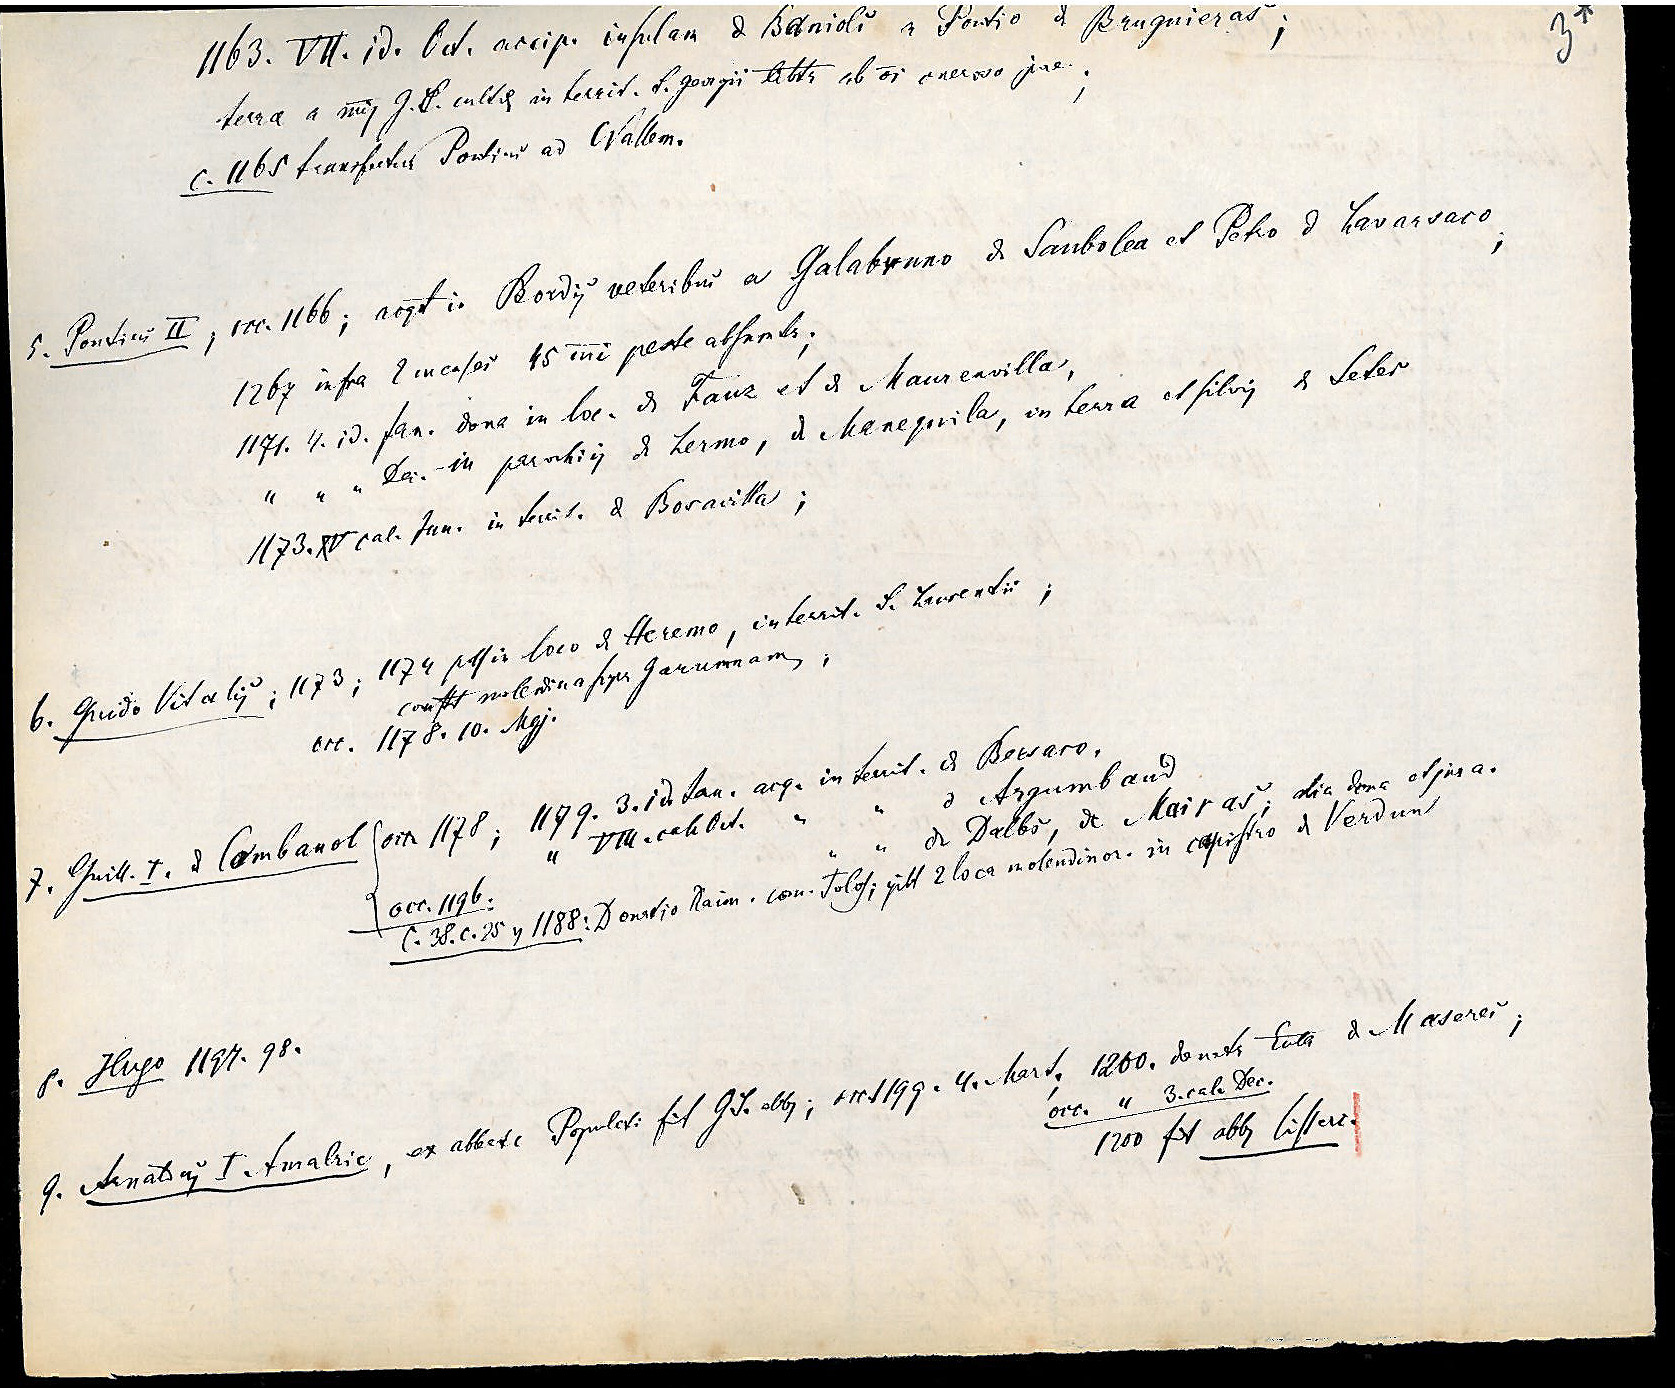 3*
1163. VII. id. Oct. accip. insulam d Baniolis a Pontio d Bruguieras;
terra a G.S. cultae in territ. S. georgii ab oneroso jure;
c. 1165 transfertur Pontius ad Cvallem.
5. Pontius II; occ. 1166; acqt i. Bordis veteribus a Galabruno de Saubolea et Petro d Lavarsaco;
1267 infra 2 menses 45 peste absumtr;
1171. 4. id. Jan. dona in loc. de Fauz et de Maurenvilla,
" " " Dec. in parochiis de Lermo, de Manequila, in terra et silvis de Seter
1173. XV cal. Jun. in territ. d Boravilla;
6. Guido Vitalis; 1173; 1174 possis loco de Heremo, in territ. S. Laurentii;
molendina super Garumnam;
occ. 1178. 10. Maj.
7. Guill. I. d Combanol occ. 1178; 1179. 3. id. Jan. acq. in territ. de Bersaco.
" VIII. cal. Oct. " " d Argumbaud
" " de Dalbs, de Mairas; alia dona et jura.
occ. 1196.
C. 38. c. 25 y 1188: Donatio Raim. com. Tolos; 2 loca molendinor. in capistro d Verdun
8. Hugo 1197. 98.
9. Arnaldus I. Amalric, ex abbate Populeti fit G.S. abbs; occ. 1199. 4. Mart, 1200. donatr d Maseres;
occ. " 3. cal. Dec.
1200 fit abbs Cisterc.